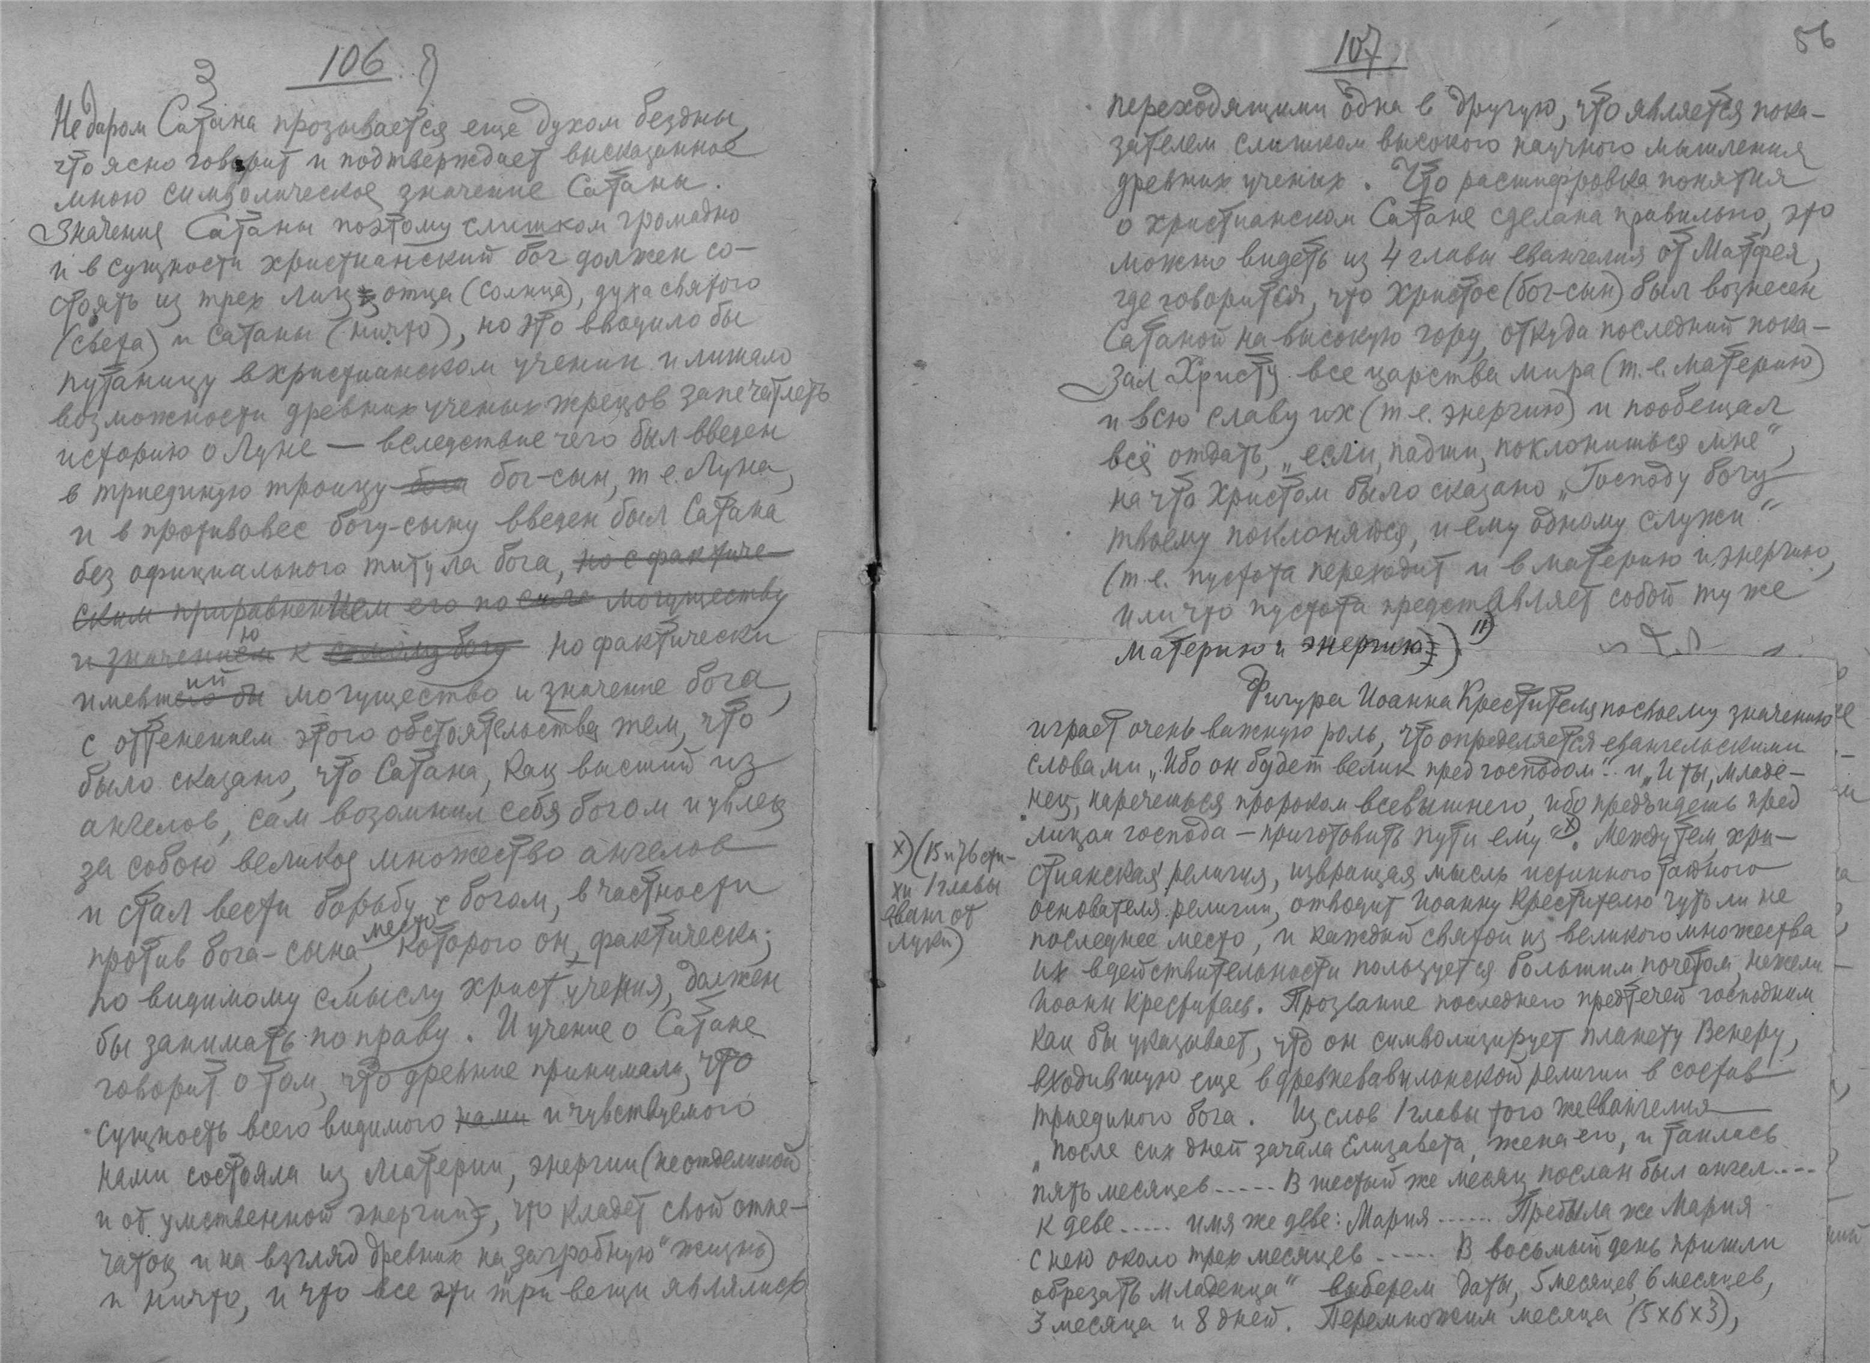 106
Недаром Сатана прозывается еще духом бездны,
что ясно говорит и подтверждает высказанное
мною символическое значение Сатаны.
Значение Сатаны поэтому слишком громадно
и в сущности христианский бог должен со-
стоять из трех лиц: отца (солнца), духа святого
(света) и сатаны (ничто), но это вводило бы
путаницу в христианском учении и лишало
возможности древних ученых жрецов запечатлеть
историю о Луне — вследствие чего был введен
в триединую троицу бога бог-сын, т.е. Луна,
и в противовес богу-сыну введен был Сатана
без официального титула бога, но с фактиче-
ским приравнением его по силе могуществу
и значению к самому богу но фактически
имевший могущество и значение бога,
с оттенением этого обстоятельства тем, что
было сказано, что Сатана, как высший из
ангелов, сам возомнил себя богом и увлек
за собою великое множество ангелов
и стал вести борьбу с богом, в частности
против бога-сына, место которого он, фактически,
по видимому смыслу христ. учения, должен
бы занимать по праву. И учение о Сатане
говорит о том, что древние принимали, что
сущность всего видимого нами и чувствуемого
нами состояла из материи, энергии (неотделимой
и от умственной энергии, что кладет свой отпе-
чаток и на взгляд древних на загробную жизнь)
и ничто, и что все эти три вещи являлись
107
56
переходящими одна в другую, что является пока-
зателем слишком высокого научного мышления
древних ученых. Что расшифровка понятия
о христианском Сатане сделана правильно, это
можно видеть из 4 главы евангелия от Матфея,
где говорится, что Христос (бог-сын) был вознесен
Сатаной на высокую гору, откуда последний пока-
зал Христу все царства мира (т.е. материю)
и всю славу их (т.е. энергию) и пообещал
всё отдать, „если, падши, поклонишься мне“,
на что Христом было сказано „Господу богу
твоему поклоняйся, и ему одному служи“
(т.е. пустота переходит и в материю и энергию,
или что пустота представляет собой ту же
материю и энергию)
Фигура Иоанна Крестителя по своему значению
играет очень важную роль, что определяется евангельскими
словами „Ибо он будет велик пред господом“ и „И ты, младе-
нец, наречешься пророком всевышнего, ибо предъидешь пред
лицом господа — приготовить пути ему“ х). Между тем хри-
стианская религия, извращая мысль истинного тайного
основателя религии, отводит Иоанну Крестителю чуть ли не
последнее место, и каждый святой из великого множества
их в действительности пользуется большим почетом нежели
Иоанн Креститель. Прозвание последнего предтечей господним
как бы указывает, что он символизирует планету Венеру,
входившую еще в древневавилонской религии в состав
триединого бога. Из слов 1 главы того же евангелия
„после сих дней зачала Елизавета, жена его, и таилась
пять месяцев ..... В шестый же месяц послан был ангел ....
к деве ..... имя же деве: Мария ...... Пребыла же Мария
с нею около трех месяцев ..... В восьмый день пришли
обрезать младенца“ выберем даты, 5 месяцев, 6 месяцев,
3 месяца и 8 дней. Перемножим месяца (5х6х3),
х) (15 и 76 сти-
хи 1 главы
еванг от
Луки)